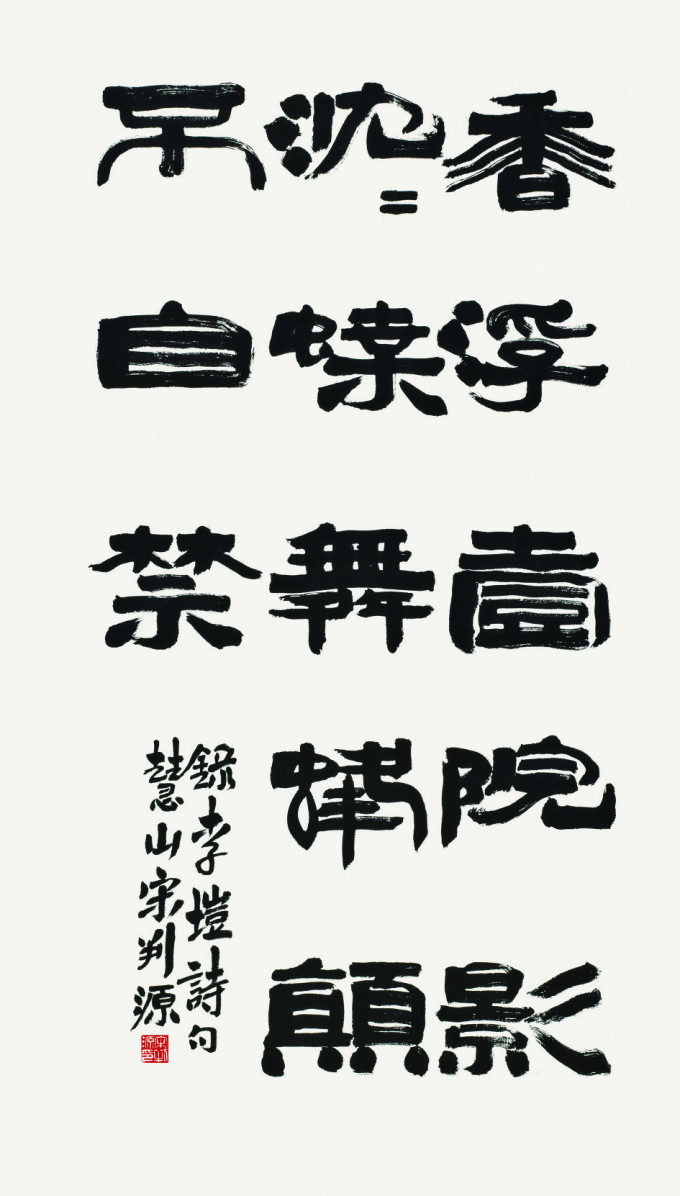 香浮壹院影
沈=蝶舞蜂顛
不自禁
錄李塏詩句
慧山宋判源